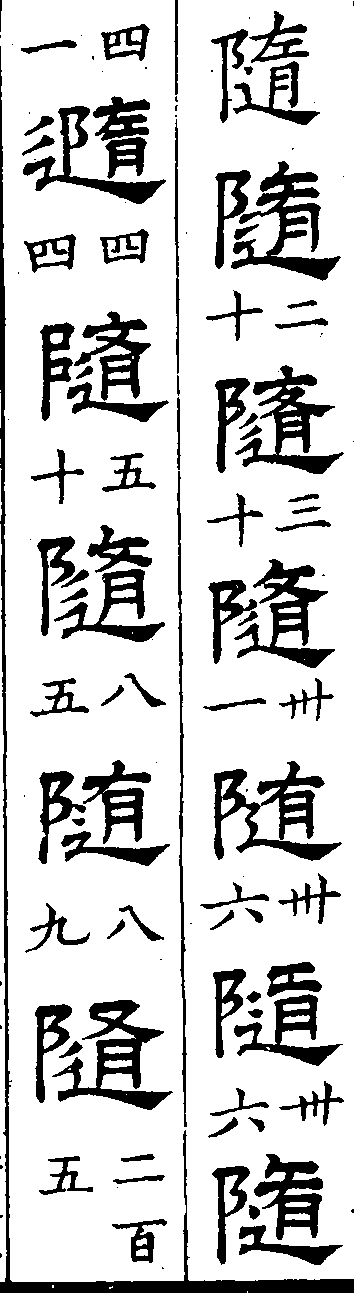 隨隨二十隨三十隨卅一随卅六隨卅六隨
四一隨四四隨五十隨八五随八九隨二百五